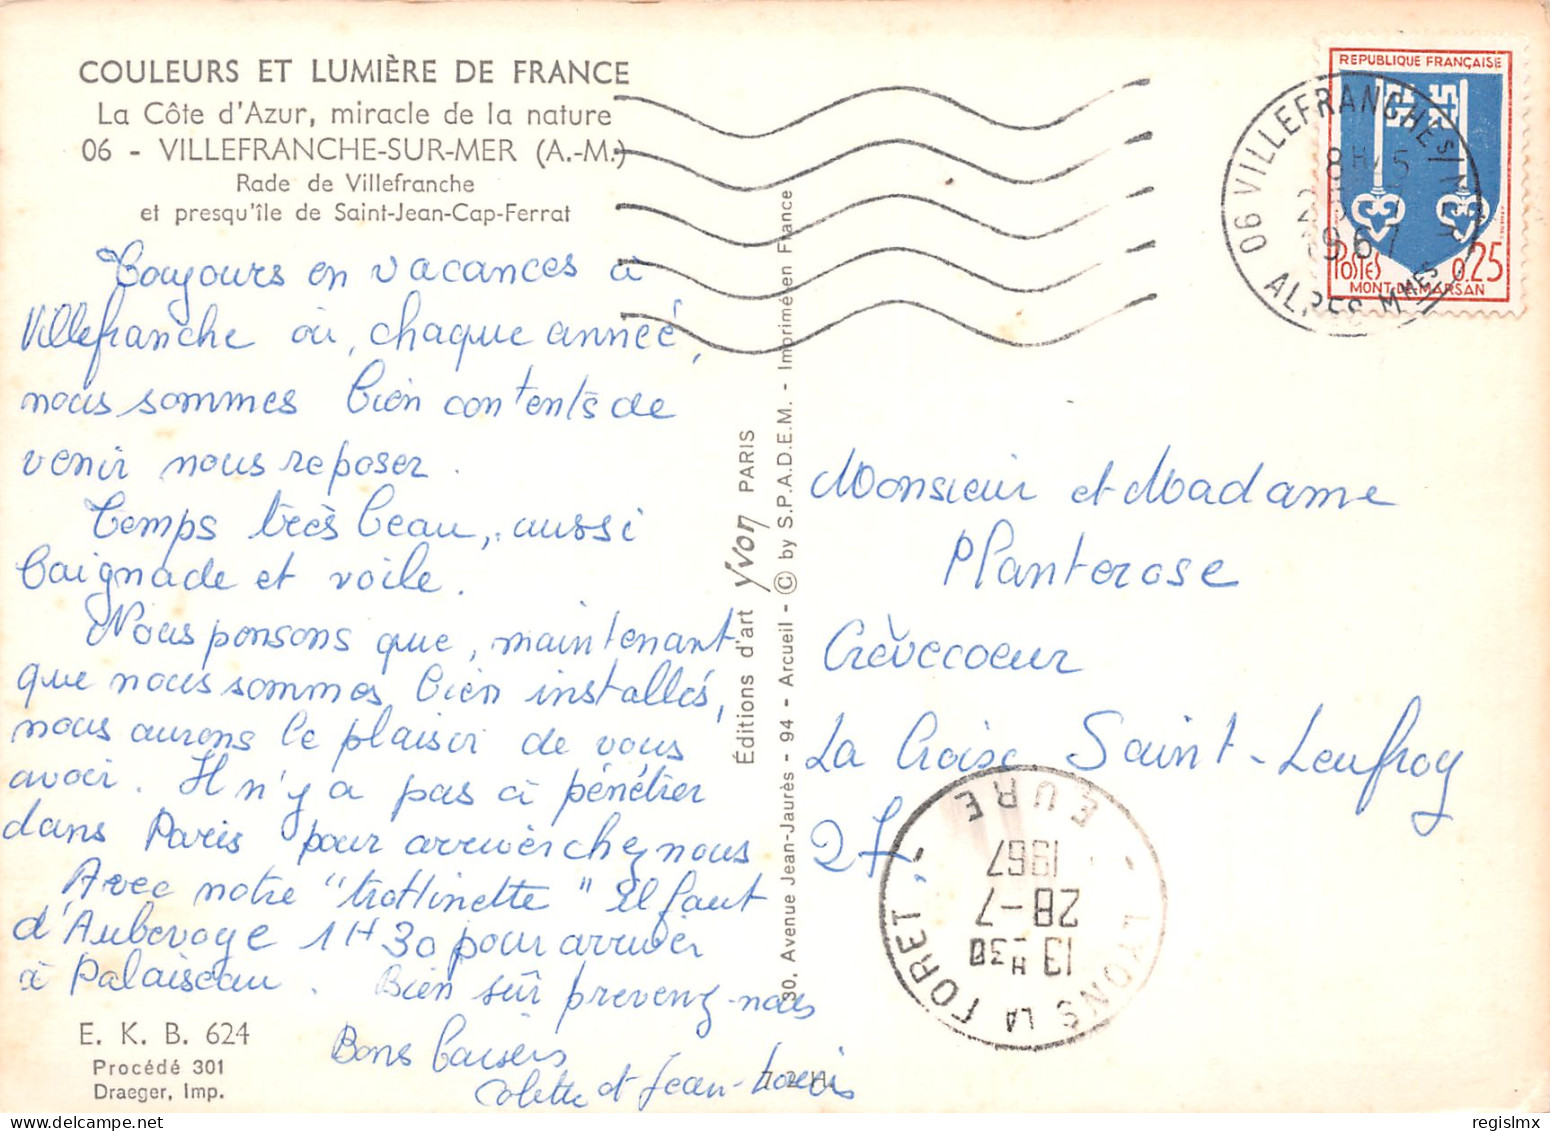 COULEURS ET LUMIÈRE DE FRANCE
La Côte d'Azur, miracle de la nature
06 - VILLEFRANCHE-SUR-MER (A.-M.)
Rade de Villefranche
et presqu'île de Saint-Jean-Cap-Ferrat
Toujours en vacances à
Villefranche où, chaque année,
nous sommes bien contents de
venir nous reposer.
Temps très beau, aussi
baignade et voile.
Nous pensons que, maintenant
que nous sommes bien installés,
nous aurons le plaisir de vous
avoir. Il n'y a pas à pénétrer
dans Paris pour arriver chez nous
Avec notre "trottinette" il faut
d'Aubevoye 1H30 pour arriver
à Palaiseau. Bien sûr prevenez-nous
Bons baisers
Colette et Jean-Louis
E. K. B. 624
Procédé 301
Draeger, Imp.
Éditions d'art Yvon PARIS
30, Avenue Jean-Jaurès - 94 - Arcueil - © by S.P.A.D.E.M. - Imprimé en France
REPUBLIQUE FRANÇAISE
POSTES 0,25
MONT-DE-MARSAN
06 VILLEFRANCHE S/MER
ALPES-MMES
1967
Monsieur et Madame
Planterose
Crèvecoeur
La Croix Saint-Leufroy
27
LYONS LA FORET
EURE
13 H 30
28-7
1967
regislmx